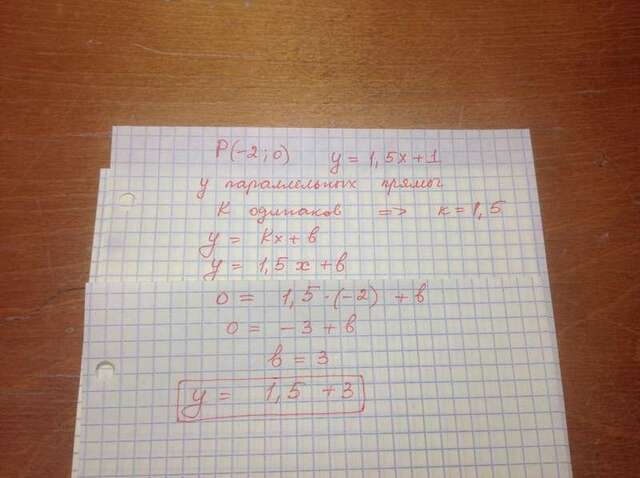 P(-2;0) y = 1,5x+1
у параллельных прямы
К одинаков => к = 1,5
y = Kx + b
y = 1,5 x + b
0 = 1,5·(-2) + b
0 = -3 + b
b = 3
y = 1,5 + 3